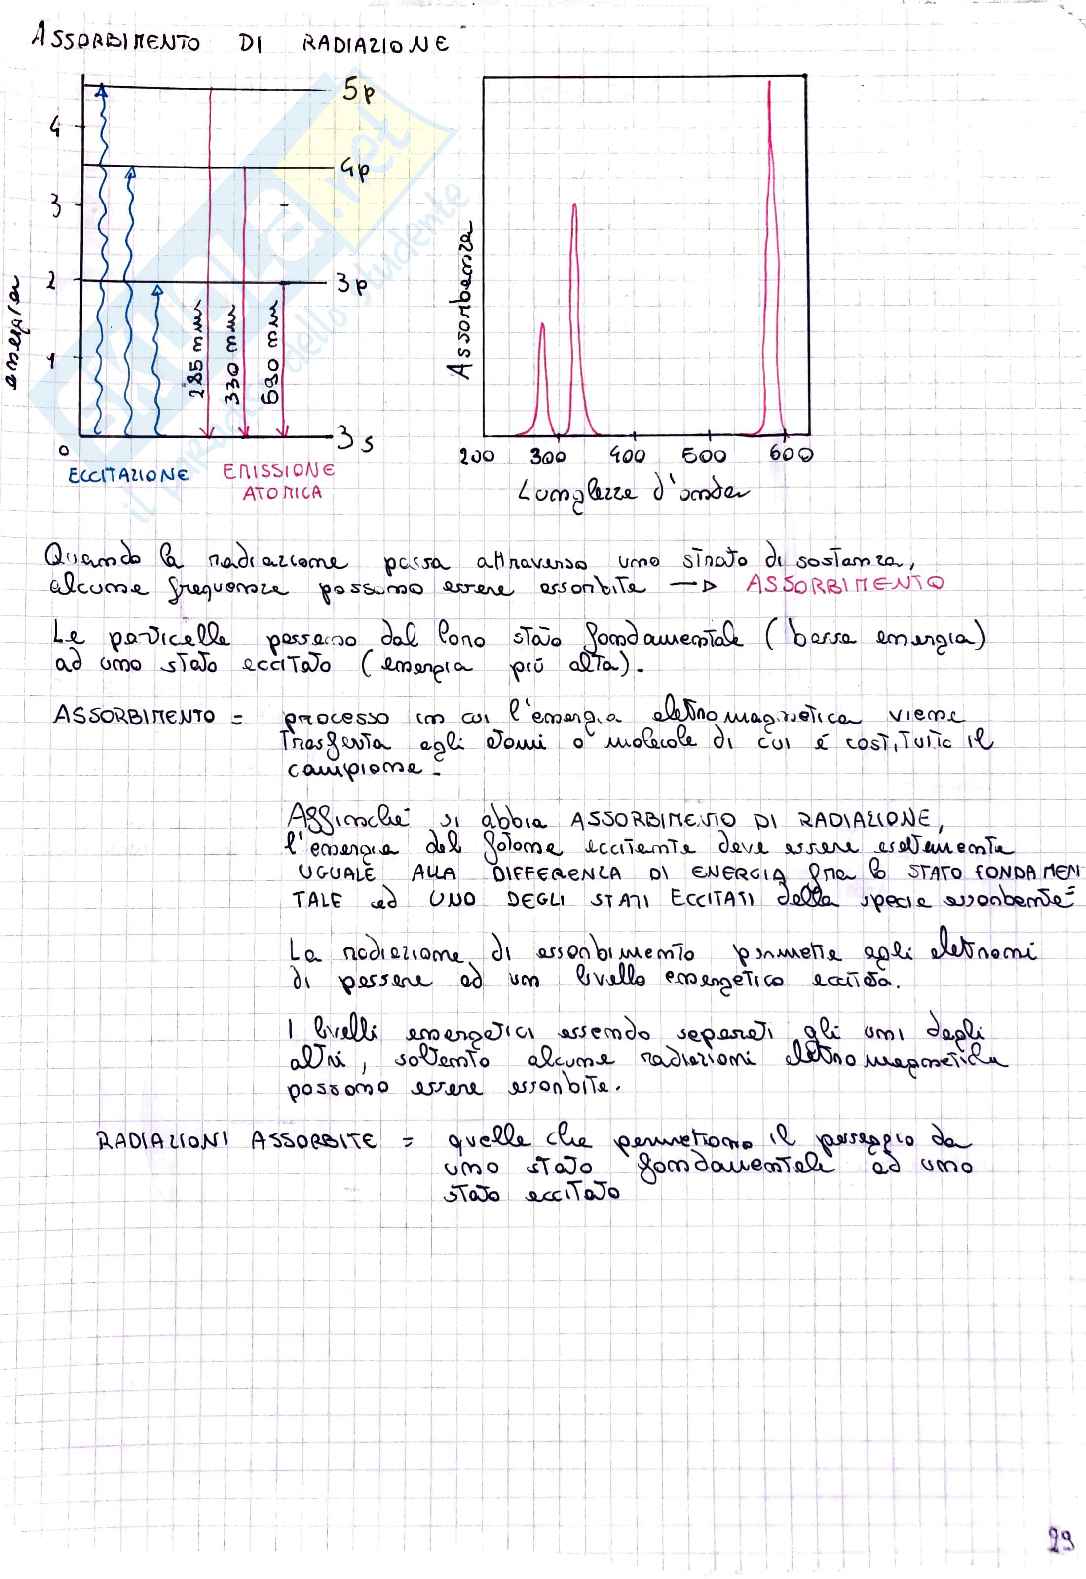 ASSORBIMENTO DI RADIAZIONE
5p
4
4p
3
2
3p
1
energia
285 nm
330 nm
590 nm
0
3s
ECCITAZIONE
EMISSIONE
ATOMICA
Assorbanza
200 300 400 500 600
Lunghezze d'onda
Quando la radiazione passa attraverso uno strato di sostanza,
alcune frequenze possono essere assorbite → ASSORBIMENTO
Le particelle passano dal loro stato fondamentale (bassa energia)
ad uno stato eccitato (energia più alta).
ASSORBIMENTO = processo in cui l'energia elettromagnetica viene
trasferita agli atomi o molecole di cui è costituito il
campione.
Affinché si abbia ASSORBIMENTO DI RADIAZIONE,
l'energia del fotone eccitante deve essere esattamente
UGUALE ALLA DIFFERENZA DI ENERGIA fra lo STATO FONDAMEN
TALE ed UNO DEGLI STATI ECCITATI della specie assorbente=
La radiazione di assorbimento permette agli elettroni
di passare ad un livello energetico eccitato.
I livelli energetici essendo separati gli uni dagli
altri, soltanto alcune radiazioni elettromagnetiche
possono essere assorbite.
RADIAZIONI ASSORBITE = quelle che permettono il passaggio da
uno stato fondamentale ad uno
stato eccitato
29